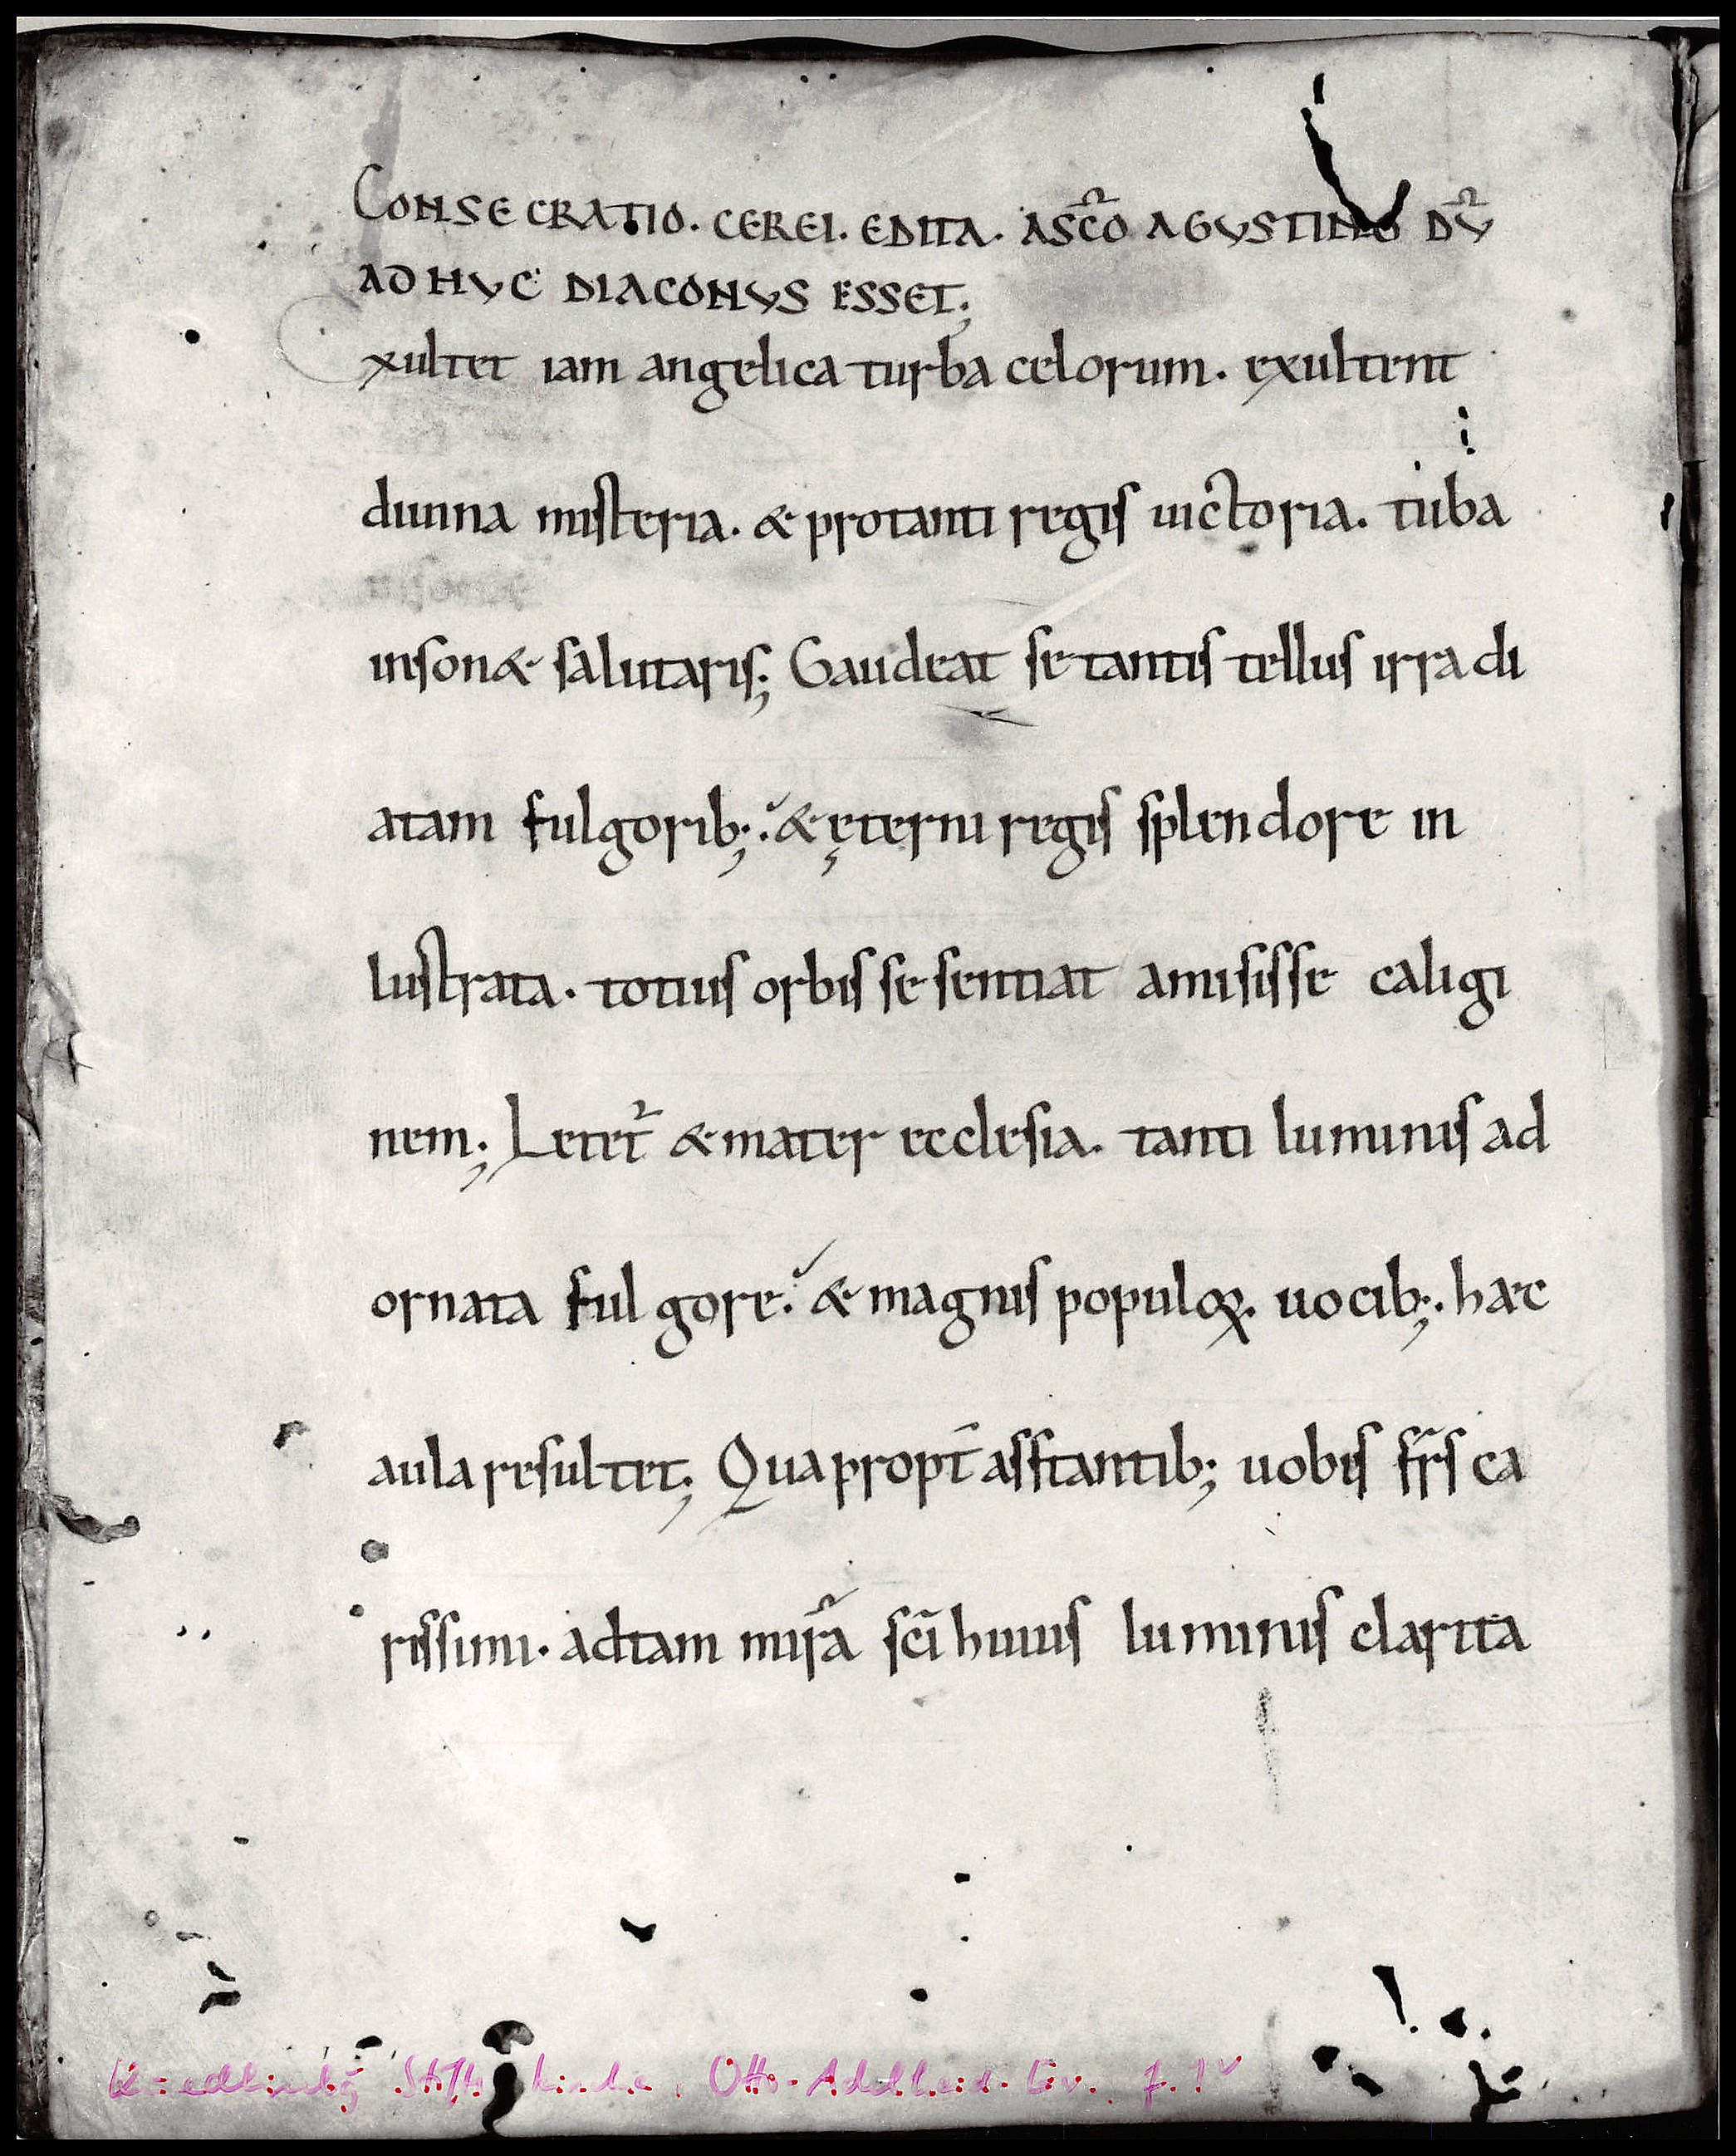 CONSECRATIO. CEREI. EDITA. ASCO AGVSTINO DV̄
ADHVC DIACONVS ESSET;
xultet iam angelica turba celorum. exultent
diuina misteria. & protanti regis uictoria. tuba
inson& salutaris; Gaudeat se tantis tellus irradi
atam fulgorib;. & ęterni regis splendore in
lustrata. totius orbis se sentiat amisisse caligi
nem; Letet̄ & mater ecclesia. tanti luminis ad
ornata fulgore. & magnis populoꝝ. uocib;. haec
aula resultet; Quapropt̄ asstantib; uobis fr̄s ca
rissimi. adtam mirā sc̄i huius luminis clarita
Otto-Adelheid-Ev. f. 1v